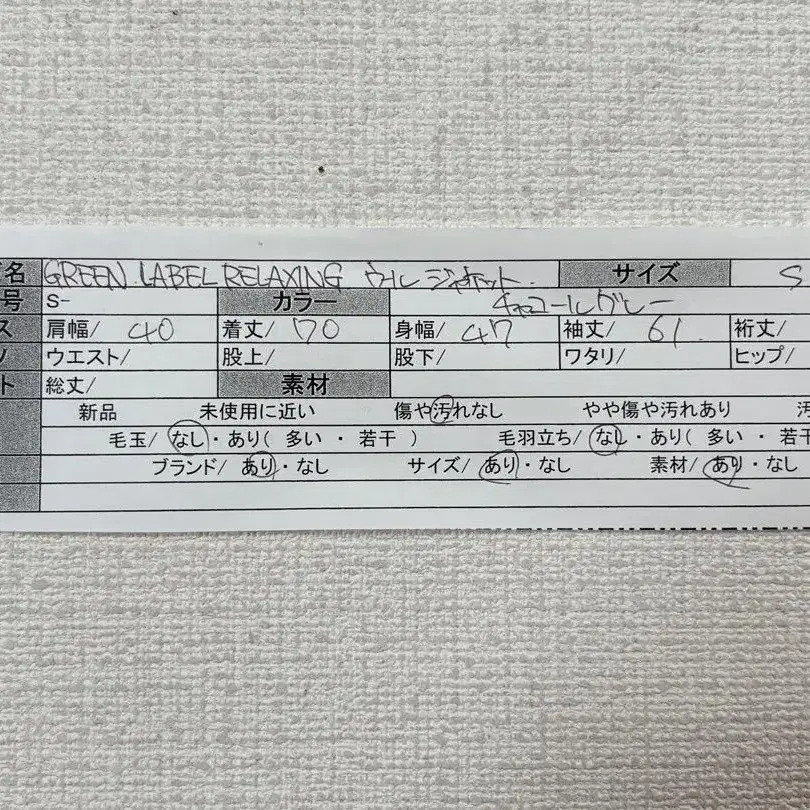 名 GREEN LABEL RELAXING ウール ジャケット. サイズ S
号 S- カラー チャコールグレー
ス 肩幅/ 40 着丈/ 70 身幅/ 47 袖丈/ 61. 裄丈/
ウエスト/ 股上/ 股下/ ワタリ/ ヒップ/
ト 総丈/ 素材
新品 未使用に近い 傷や汚れなし やや傷や汚れあり 汚
毛玉/ なし・あり( 多い ・ 若干 ) 毛羽立ち/ なし・あり( 多い ・ 若干
ブランド/ あり・なし サイズ/ あり・なし 素材/ あり・なし